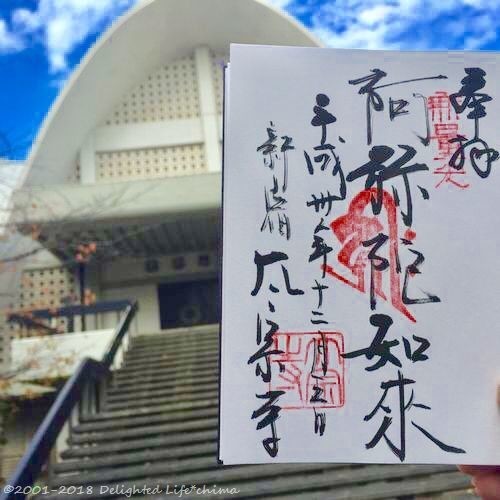 奉拝
無量光
阿弥陀如来
平成卅年十二月三日
新宿 太宗寺
©2001-2018 Delighted Life*chima